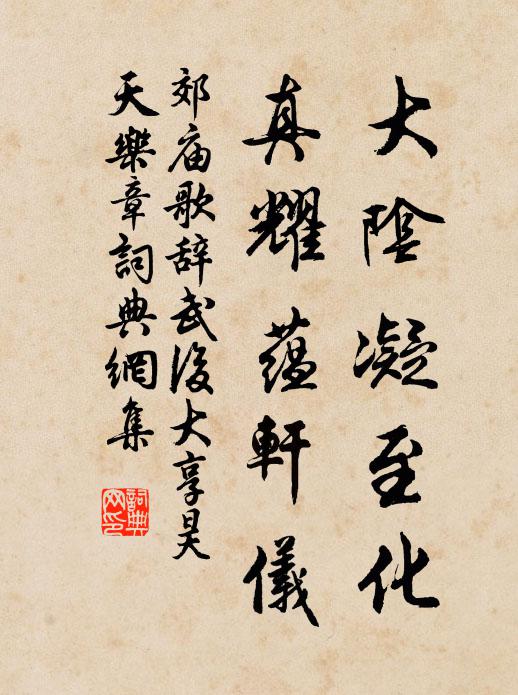 大陰凝至化
真耀蘊軒儀
郊庙歌辞武後大享昊
天樂章詞典網集
詞典網印